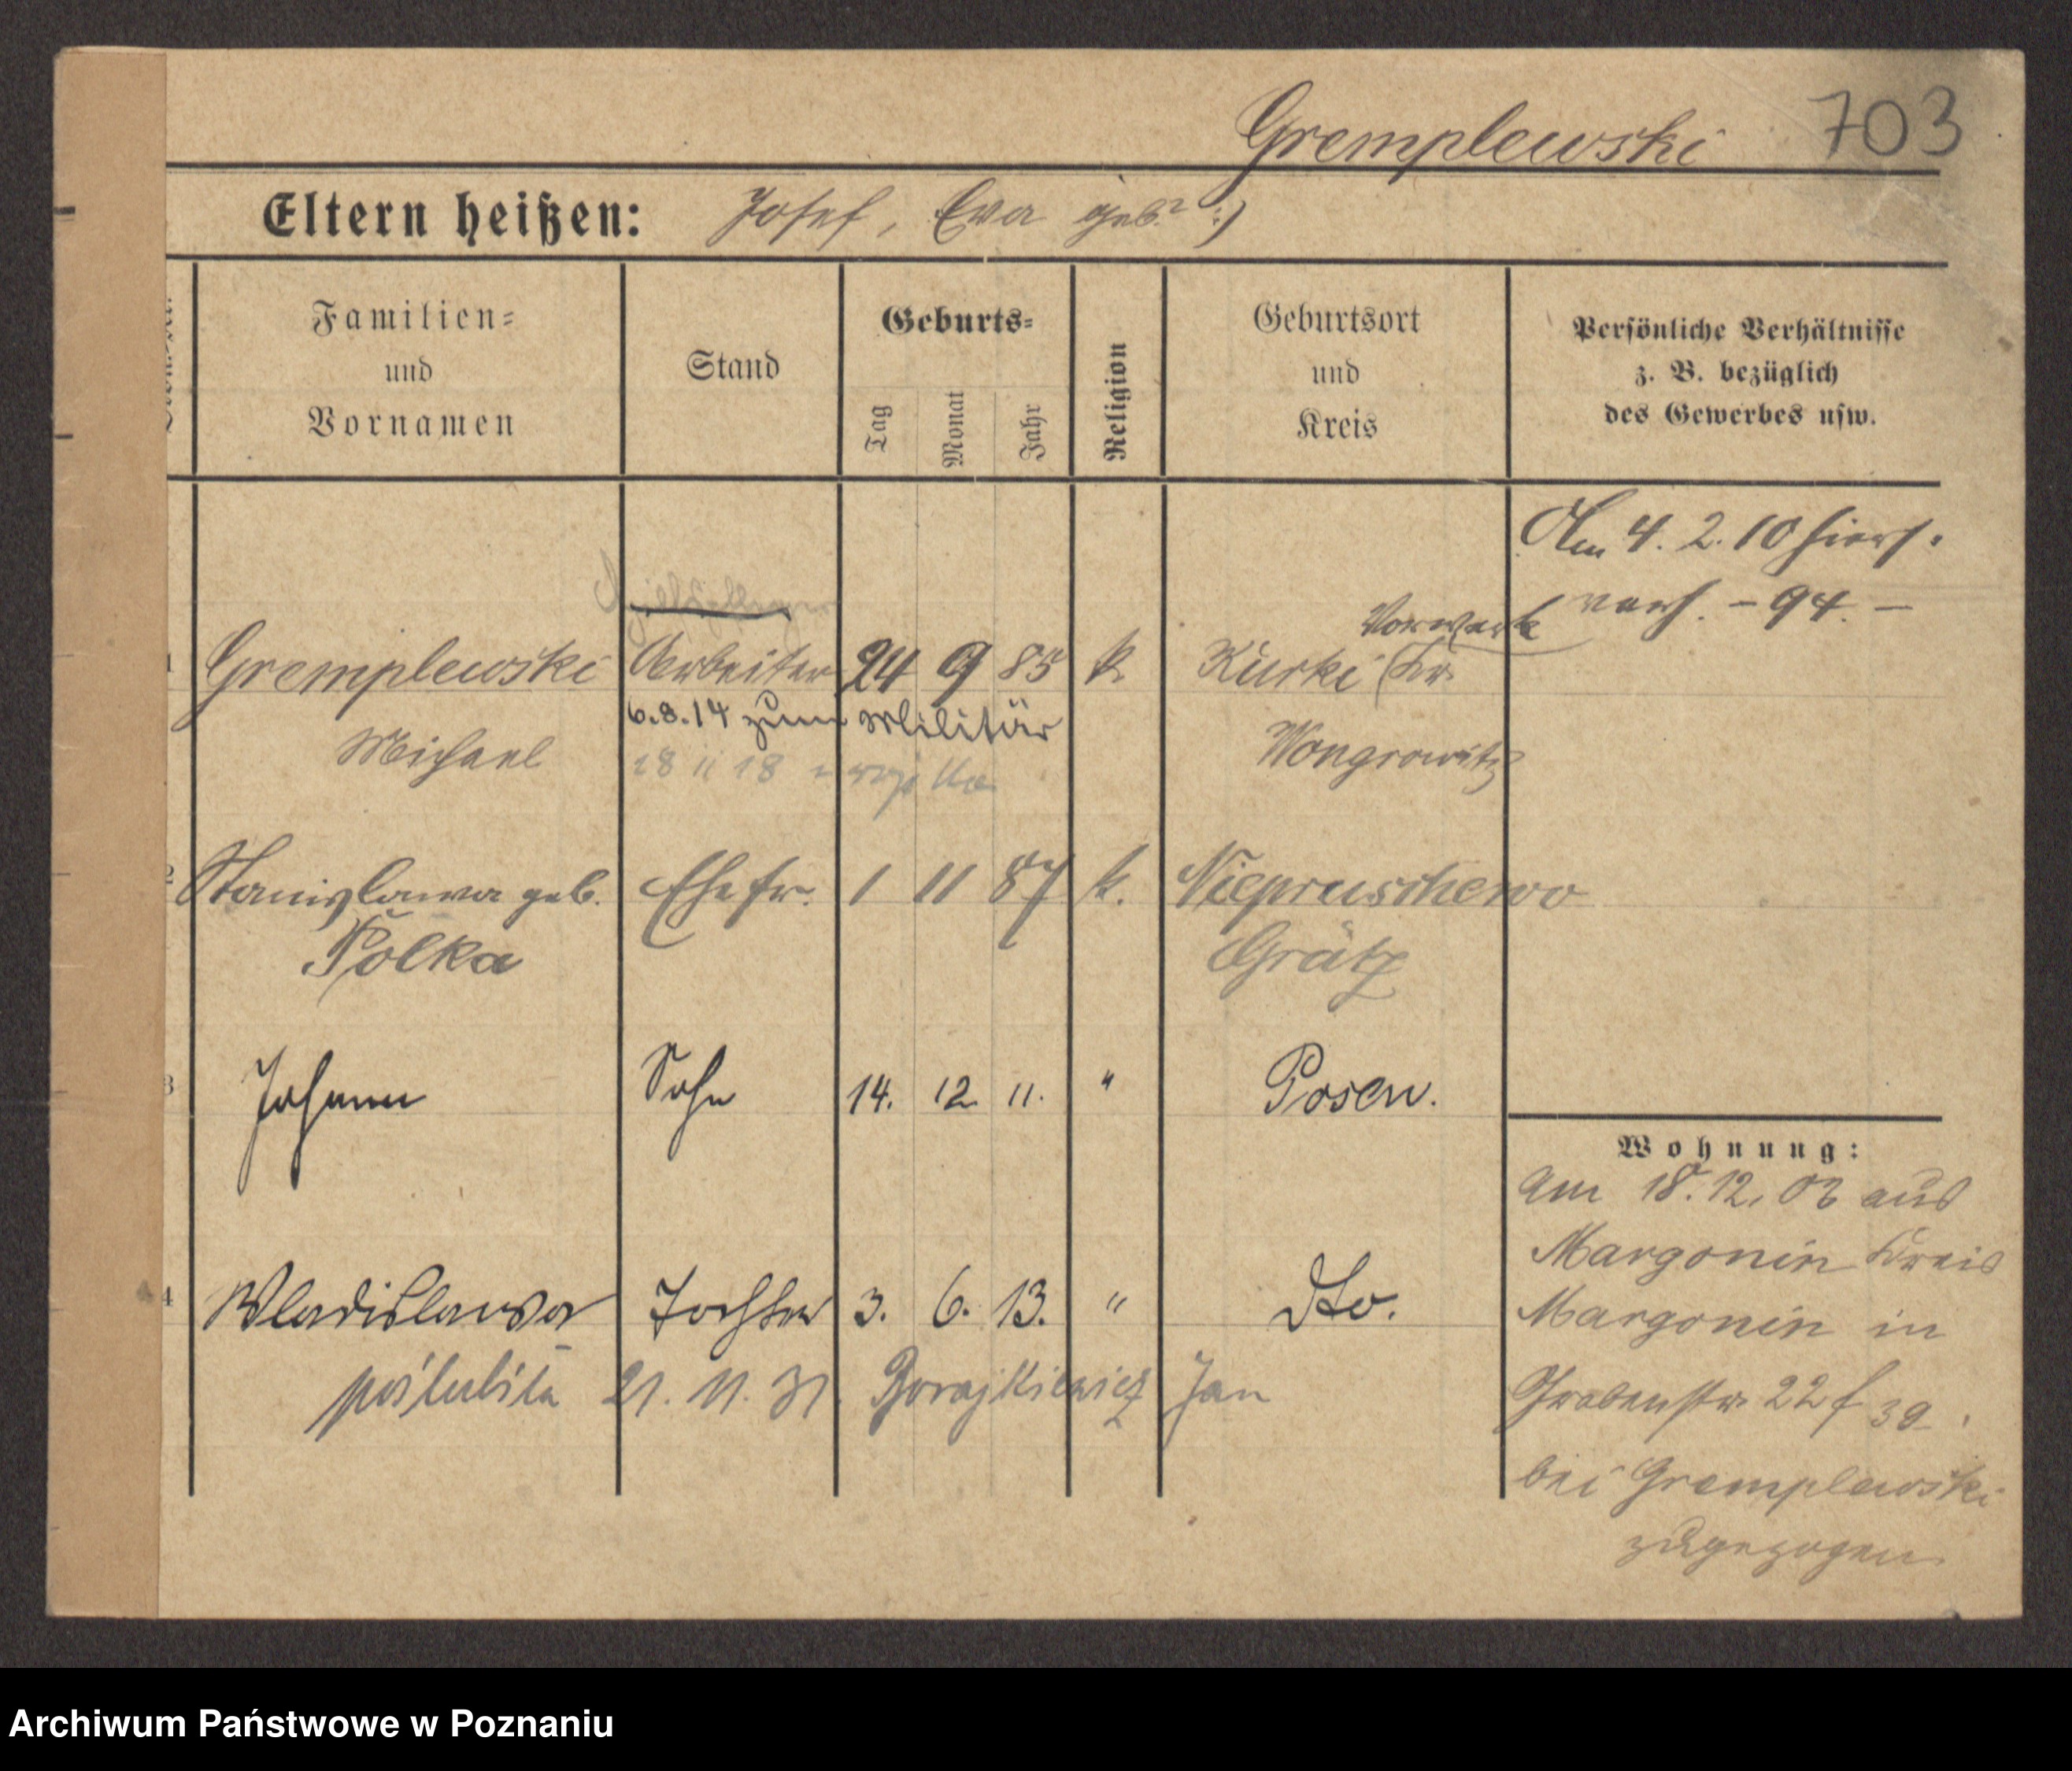 Gremplewski 703
Eltern heißen: Josef, Eva geb. ? :)
Familien= und Vornamen
Stand
Geburts=
Tag Monat Jahr
Religion
Geburtsort und Kreis
Persönliche Verhältnisse
z. B. bezüglich
des Gewerbes usw.
Am 4. 2. 10 hiers.
verh. - 94. -
Vorwerk
1 Gremplewski Arbeiter 24 9 85 k. Kurki (Kr.
6.8.14 zum Militär
Michael Wongrowitz
18 11 18
2 Stanislawa geb. Ehefr. 1 11 87 k. Niepruschewo
Polka Grätz
3 Johann Sohn 14. 12 11. " Posen.
Wohnung:
Am 18. 12. 03 aus
Margonin Kreis
4 Wladislawa Tochter 3. 6. 13. " Dto.
Margonin in
poślubiła 21. 11. 31. Jan
Grabenstr. 22 f
bei Gremplewski
zugezogen
Archiwum Państwowe w Poznaniu